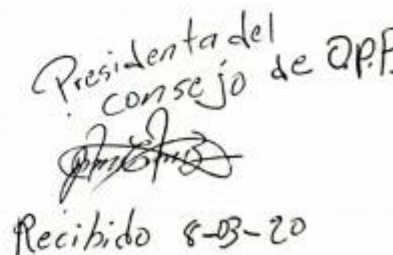 Presidenta del
consejo de O.P.P.
Recibido 8-03-20